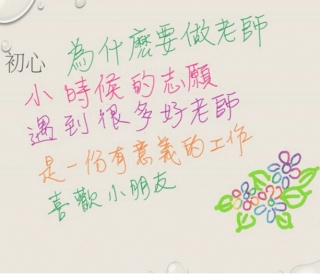 初心
為什麼要做老師
小時候的志願
遇到很多好老師
是一份有意義的工作
喜歡小朋友